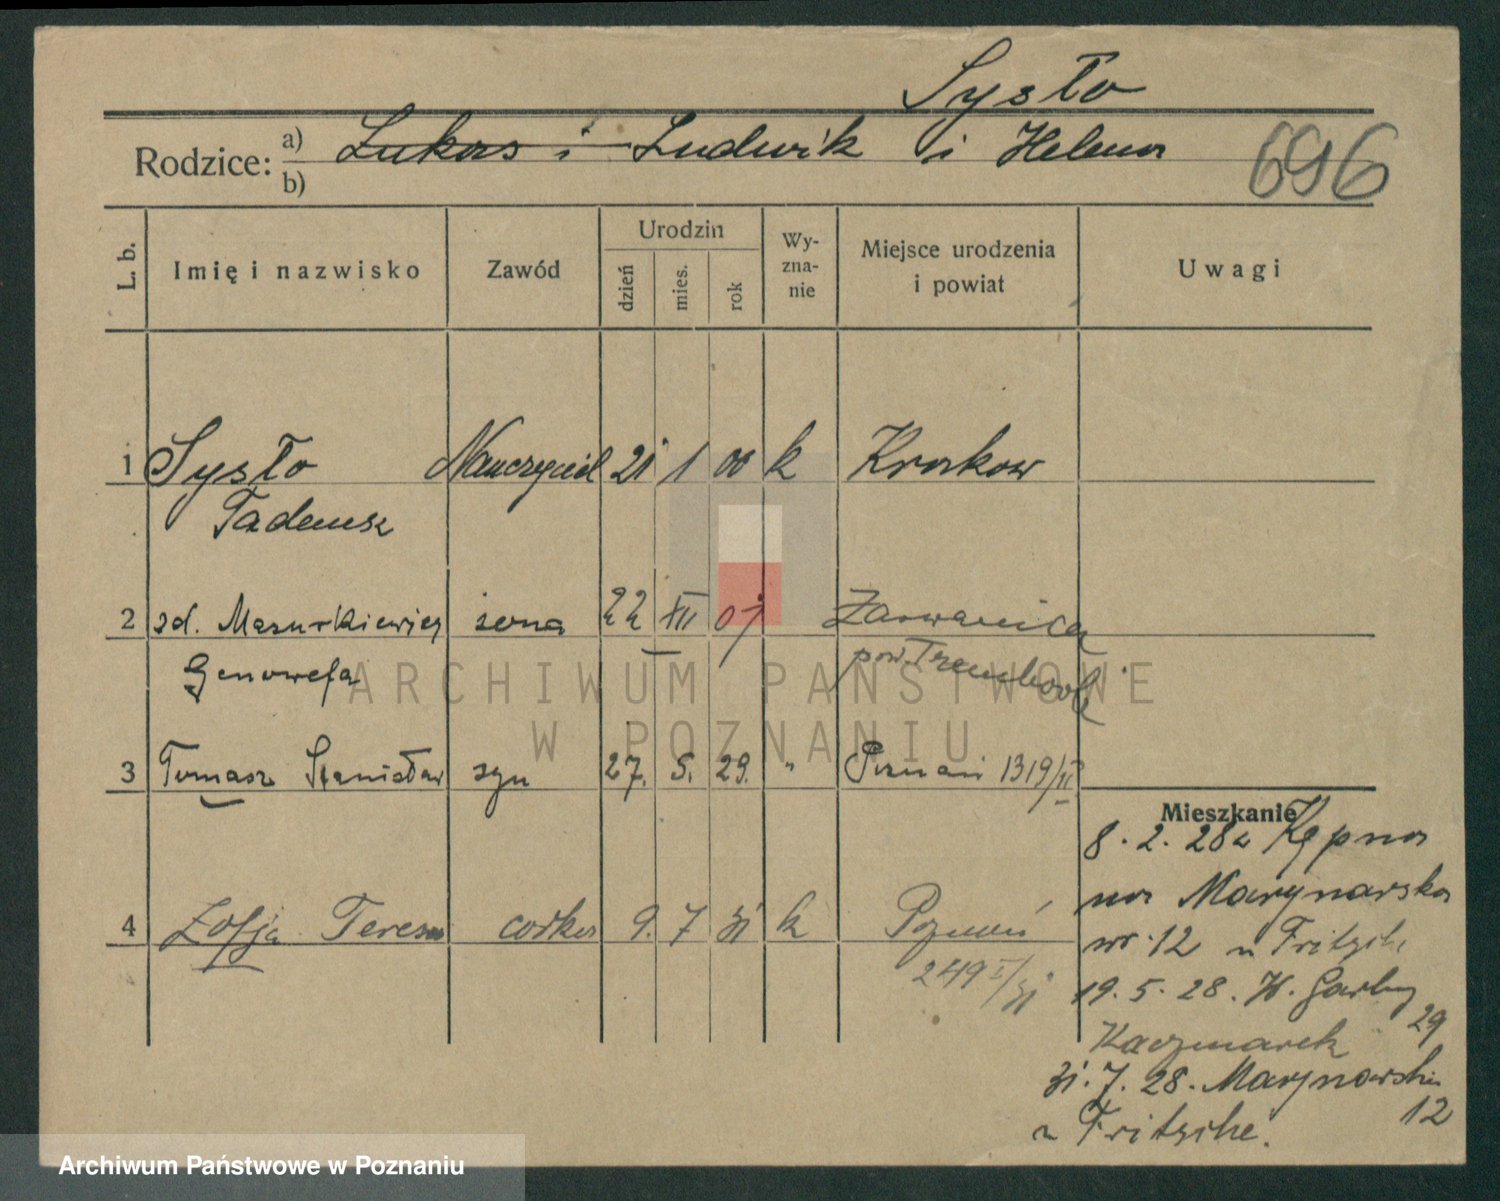 Sysło
Rodzice: a) Lukas i Ludwik i Helena
b)
696
L. b.
Imię i nazwisko
Zawód
Urodzin
dzień
mies.
rok
Wy-
zna-
nie
Miejsce urodzenia
i powiat
Uwagi
1 Sysło Nauczyciel 21 1 00 k Krakow
Tadeusz
2 zd. Mazurkiewicz żona 22 XII 07 Zarwanica
Genowefa pow. Trembowla
3 Tomasz Stanisław syn 27. 5. 29. " Poznań 1319/II
4 Zofja Teresa córka 9. 7 31 k Poznań
249 I/31
Mieszkanie
8. 2. 28 z Kępna
na Marynarska
nr. 12 u Fritzsche
19. 5. 28. H. Garbary
29
Kaczmarek
31. 7. 28. Marynarska
12
u Fritzsche.
ARCHIWUM PAŃSTWOWE
W POZNANIU
Archiwum Państwowe w Poznaniu